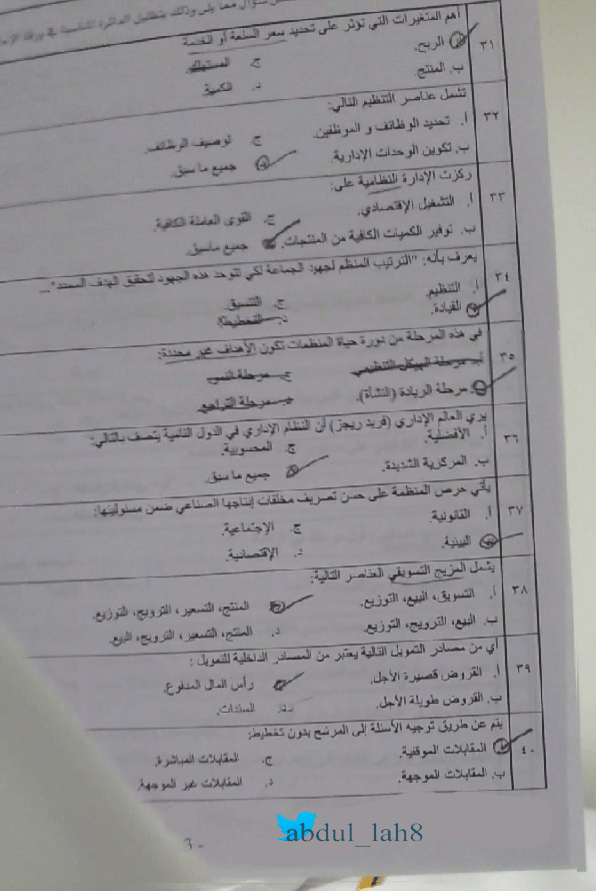 سؤال مما يلي وذلك بتظليل الدائرة المناسبة في ورقة
٣١ أهم المتغيرات التي تؤثر على تحديد سعر السلعة أو الخدمة
الربح. ج. المستهلك
ب. المنتج. د. الكمية
٣٢ تشمل عناصر التنظيم التالي:
أ. تحديد الوظائف و الموظفين. ج. توصيف الوظائف.
ب. تكوين الوحدات الإدارية. جميع ما سبق.
٣٣ ركزت الإدارة النظامية على:
أ. التشغيل الإقتصادي. ج. القوى العاملة الكافية.
ب. توفير الكميات الكافية من المنتجات. جميع ماسبق.
٣٤ يعرف بأنه: "الترتيب المنظم لجهود الجماعة لكي تتوحد هذه الجهود لتحقيق الهدف المحدد"...
أ. التنظيم. ج. التنسيق.
القيادة. د. التخطيط.
٣٥ في هذه المرحلة من دورة حياة المنظمات تكون الأهداف غير محددة:
أ. مرحلة الهيكل التنظيمي ج. مرحلة النمو
مرحلة الريادة (النشأة). د. مرحلة التراجع
٣٦ يرى العالم الإداري (فريد ريجز) أن النظام الإداري في الدول النامية يتصف بالتالي:
أ. الأفضلية. ج. المحسوبية.
ب. المركزية الشديدة. جميع ما سبق.
٣٧ يأتي حرص المنظمة على حسن تصريف مخلفات إنتاجها الصناعي ضمن مسئوليتها:
أ. القانونية. ج. الإجتماعية.
البيئية. د. الإقتصادية.
٣٨ يشمل المزيج التسويقي العناصر التالية:
أ. التسويق، البيع، التوزيع. المنتج، التسعير، الترويج، التوزيع.
ب. البيع، الترويج، التوزيع. د. المنتج، التسعير، الترويج، البيع.
٣٩ أي من مصادر التمويل التالية يعتبر من المصادر الداخلية للتمويل :
أ. القروض قصيرة الأجل. رأس المال المدفوع.
ب. القروض طويلة الأجل. د. السندات.
٤٠ يتم عن طريق توجيه الأسئلة إلى المرشح بدون تخطيط:
المقابلات الموقفية. ج. المقابلات المباشرة.
ب. المقابلات الموجهة. د. المقابلات غير الموجهة.
abdul_lah8
3 -